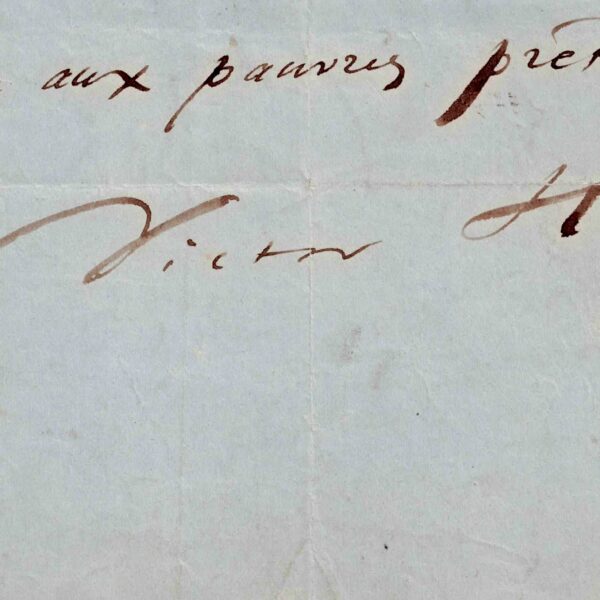 aux pauvres prêt
Victor H